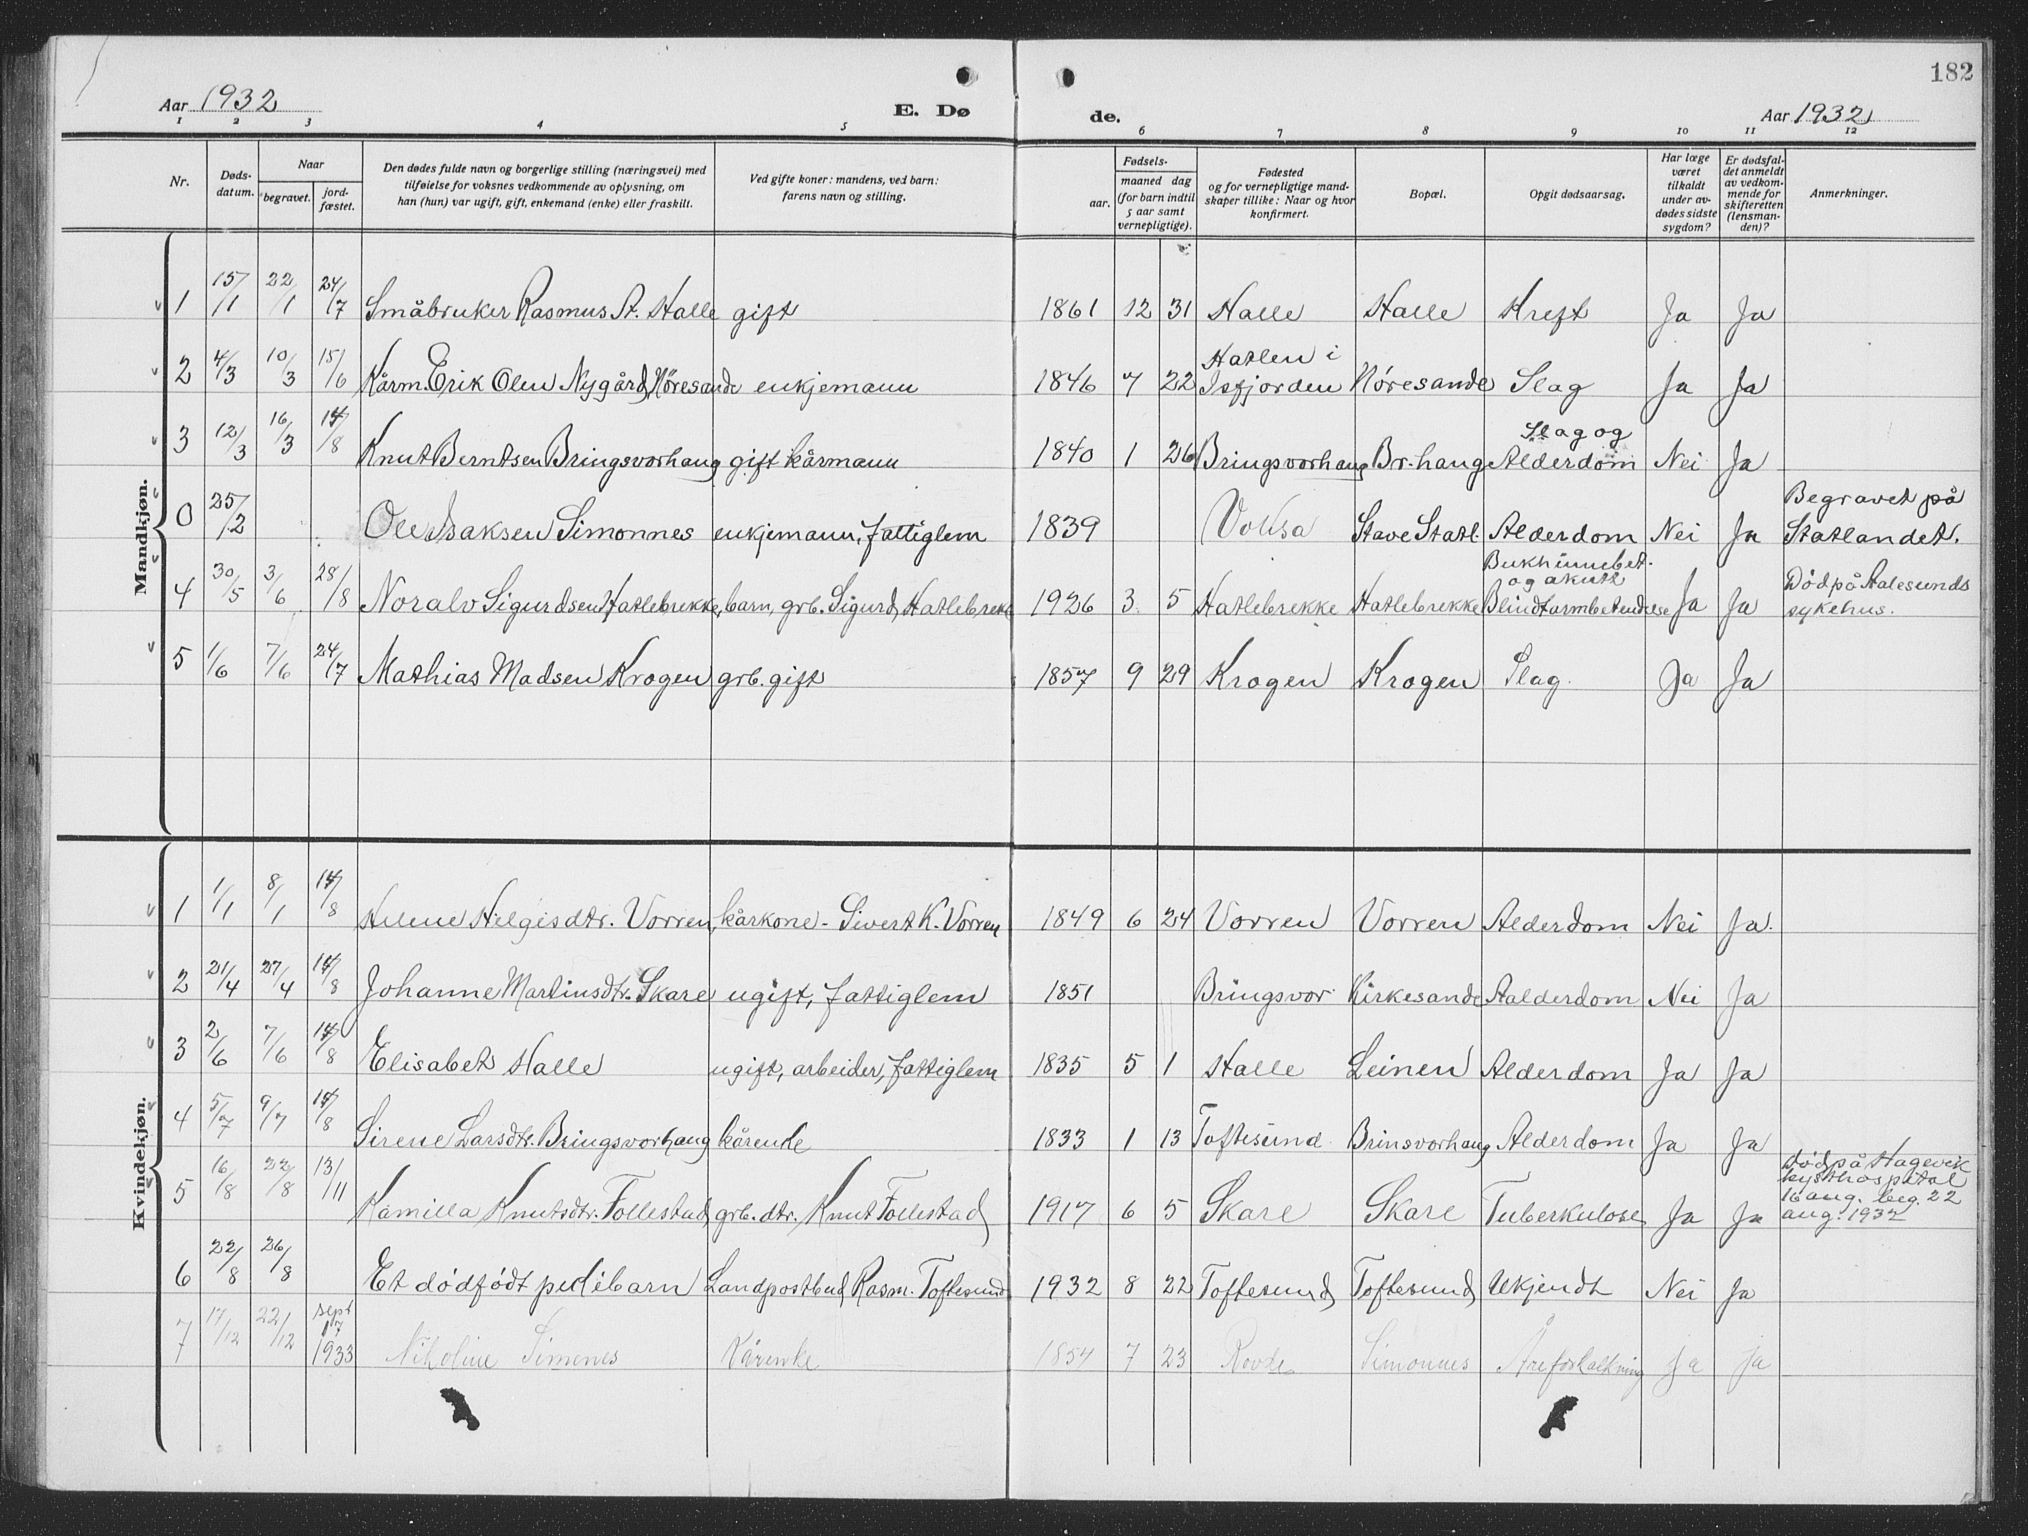 182
Aar 1932 E. Dø de. Aar 1932
1 2 3 4 5 6 7 8 9 10 11 12
Nr. Døds-datum. Naar begravet. jord-fæstet. Den dødes fulde navn og borgerlige stilling (næringsvei) med tilføielse for voksnes vedkommende av oplysning, om han (hun) var ugift, gift, enkemand (enke) eller fraskilt. Ved gifte koner: mandens, ved barn: farens navn og stilling. Fødsels- aar. maaned dag (for barn indtil 5 aar samt vernepligtige). Fødested og for vernepligtige mand-skaper tillike: Naar og hvor konfirmert. Bopæl. Opgit dødsaarsag. Har læge været tilkaldt under av-dødes sidste sygdom? Er dødsfal-det anmeldt av vedkom-mende for skifteretten (lensman-den)? Anmerkninger.
Mandkjøn.
1 15/1 22/1 24/7 Småbruker Rasmus A. Halle gift 1861 12 31 Halle Halle Kreft Ja Ja
2 4/3 10/3 15/6 Kårm. Erik Olen Nygård, Nøresande enkjemann 1846 7 22 Hatlen i Isfjorden Nøresande Slag Ja Ja
3 12/3 16/3 14/8 Knut Berntsen Bringsvorhaug gift kårmann 1840 1 26 Bringsvorhaug Br.haug Slag og Alderdom Nei Ja
0 25/2 Ole Isaksen Simonnes enkjemann, fattiglem 1839 Voksa Stave Statl. Alderdom Nei Ja Begravet på Statlandet.
4 30/5 3/6 28/8 Noralv Sigurdsen Hatlebrekke, barn, grb. Sigurd Hatlebrekk 1926 3 5 Hatlebrekke Hatlebrekke Bukhinnebet. og akutt Blindtarmbetendelse Ja Ja Död på Aalesunds sykehus.
5 1/6 7/6 24/7 Mathias Madsen Krogen grb. gift 1857 9 29 Krogen Krogen Slag. Ja Ja
Kvindekjøn.
1 1/1 8/1 14/8 Helene Helgesdtr. Vorren, kårkone - Sivert K. Vorren 1849 6 24 Vorren Vorren Alderdom Nei Ja.
2 21/4 27/4 14/8 Johanne Martinsdtr. Skare ugift, fattiglem 1851 Bringsvor Kirkesande Aalderdom Nei Ja
3 2/6 7/6 14/8 Elisabet Halle ugift, arbeider, fattiglem 1835 5 1 Halle Leinen Alderdom Ja Ja
4 5/7 9/7 14/8 Sirene Larsdtr. Bringsvorhaug kårenke 1833 1 13 Toftesund Brinsvorhaug Alderdom Ja Ja
5 16/8 22/8 13/11 Kamilla Knutsdtr. Follestad grb. dtr. Knut Follestad 1917 6 5 Skare Skare Tuberkulose Ja Ja Död på Hagevik kysthospital 16 aug. beg. 22 aug. 1932
6 22/8 26/8 Et dödfödt pikebarn Landpostbud Rasm. Toftesund 1932 8 22 Toftesund Toftesund Ukjendt Nei Ja
7 17/12 22/12 sept 17 1933 Nikoline Simenes Kårenke 1854 7 23 Rovde Simonnes Åreforkalkning Ja ja